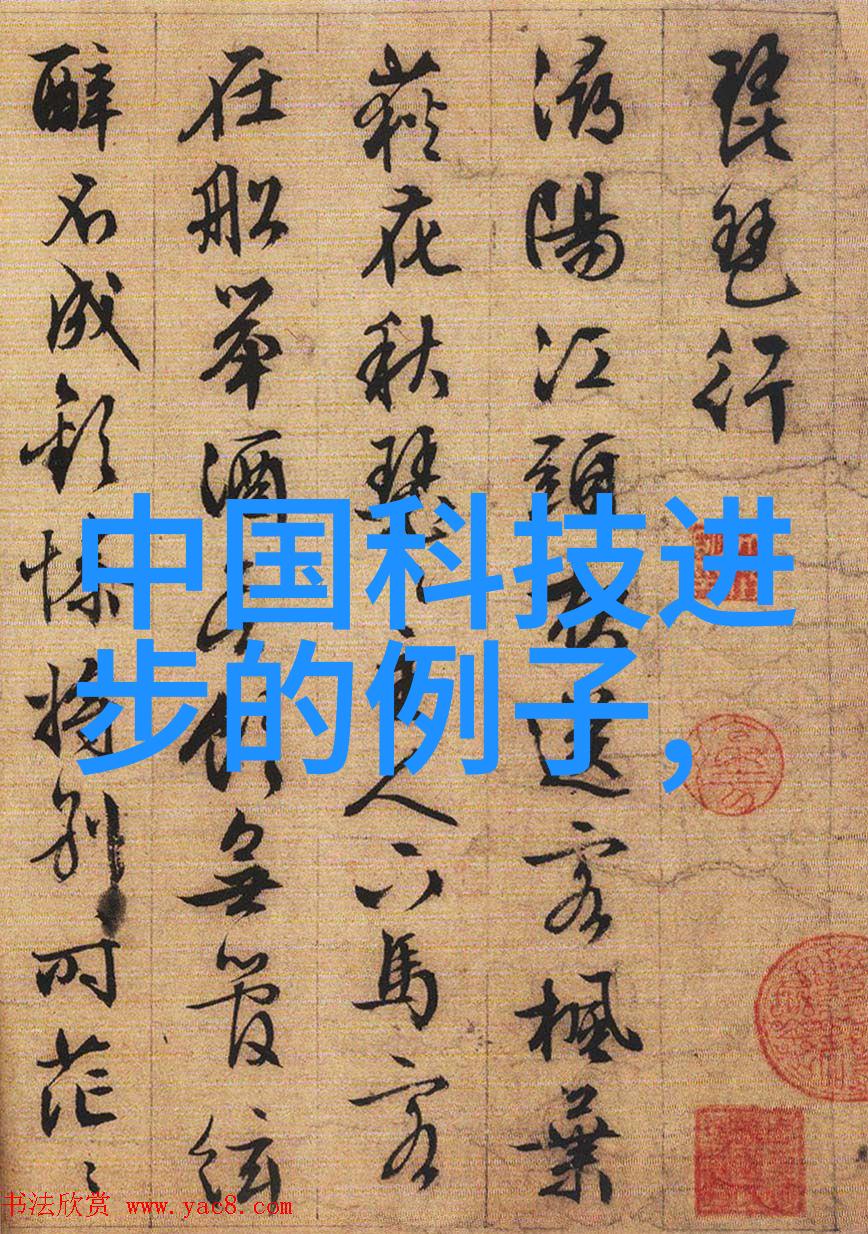 琵琶行
潯陽江頭夜送客楓葉
荻花秋瑟〻主人下馬客
在船舉酒欲飲無管絃
醉不成歡慘將別〻時茫〻
中国科技进
步的例子,
书法欣赏 www.yac8.com